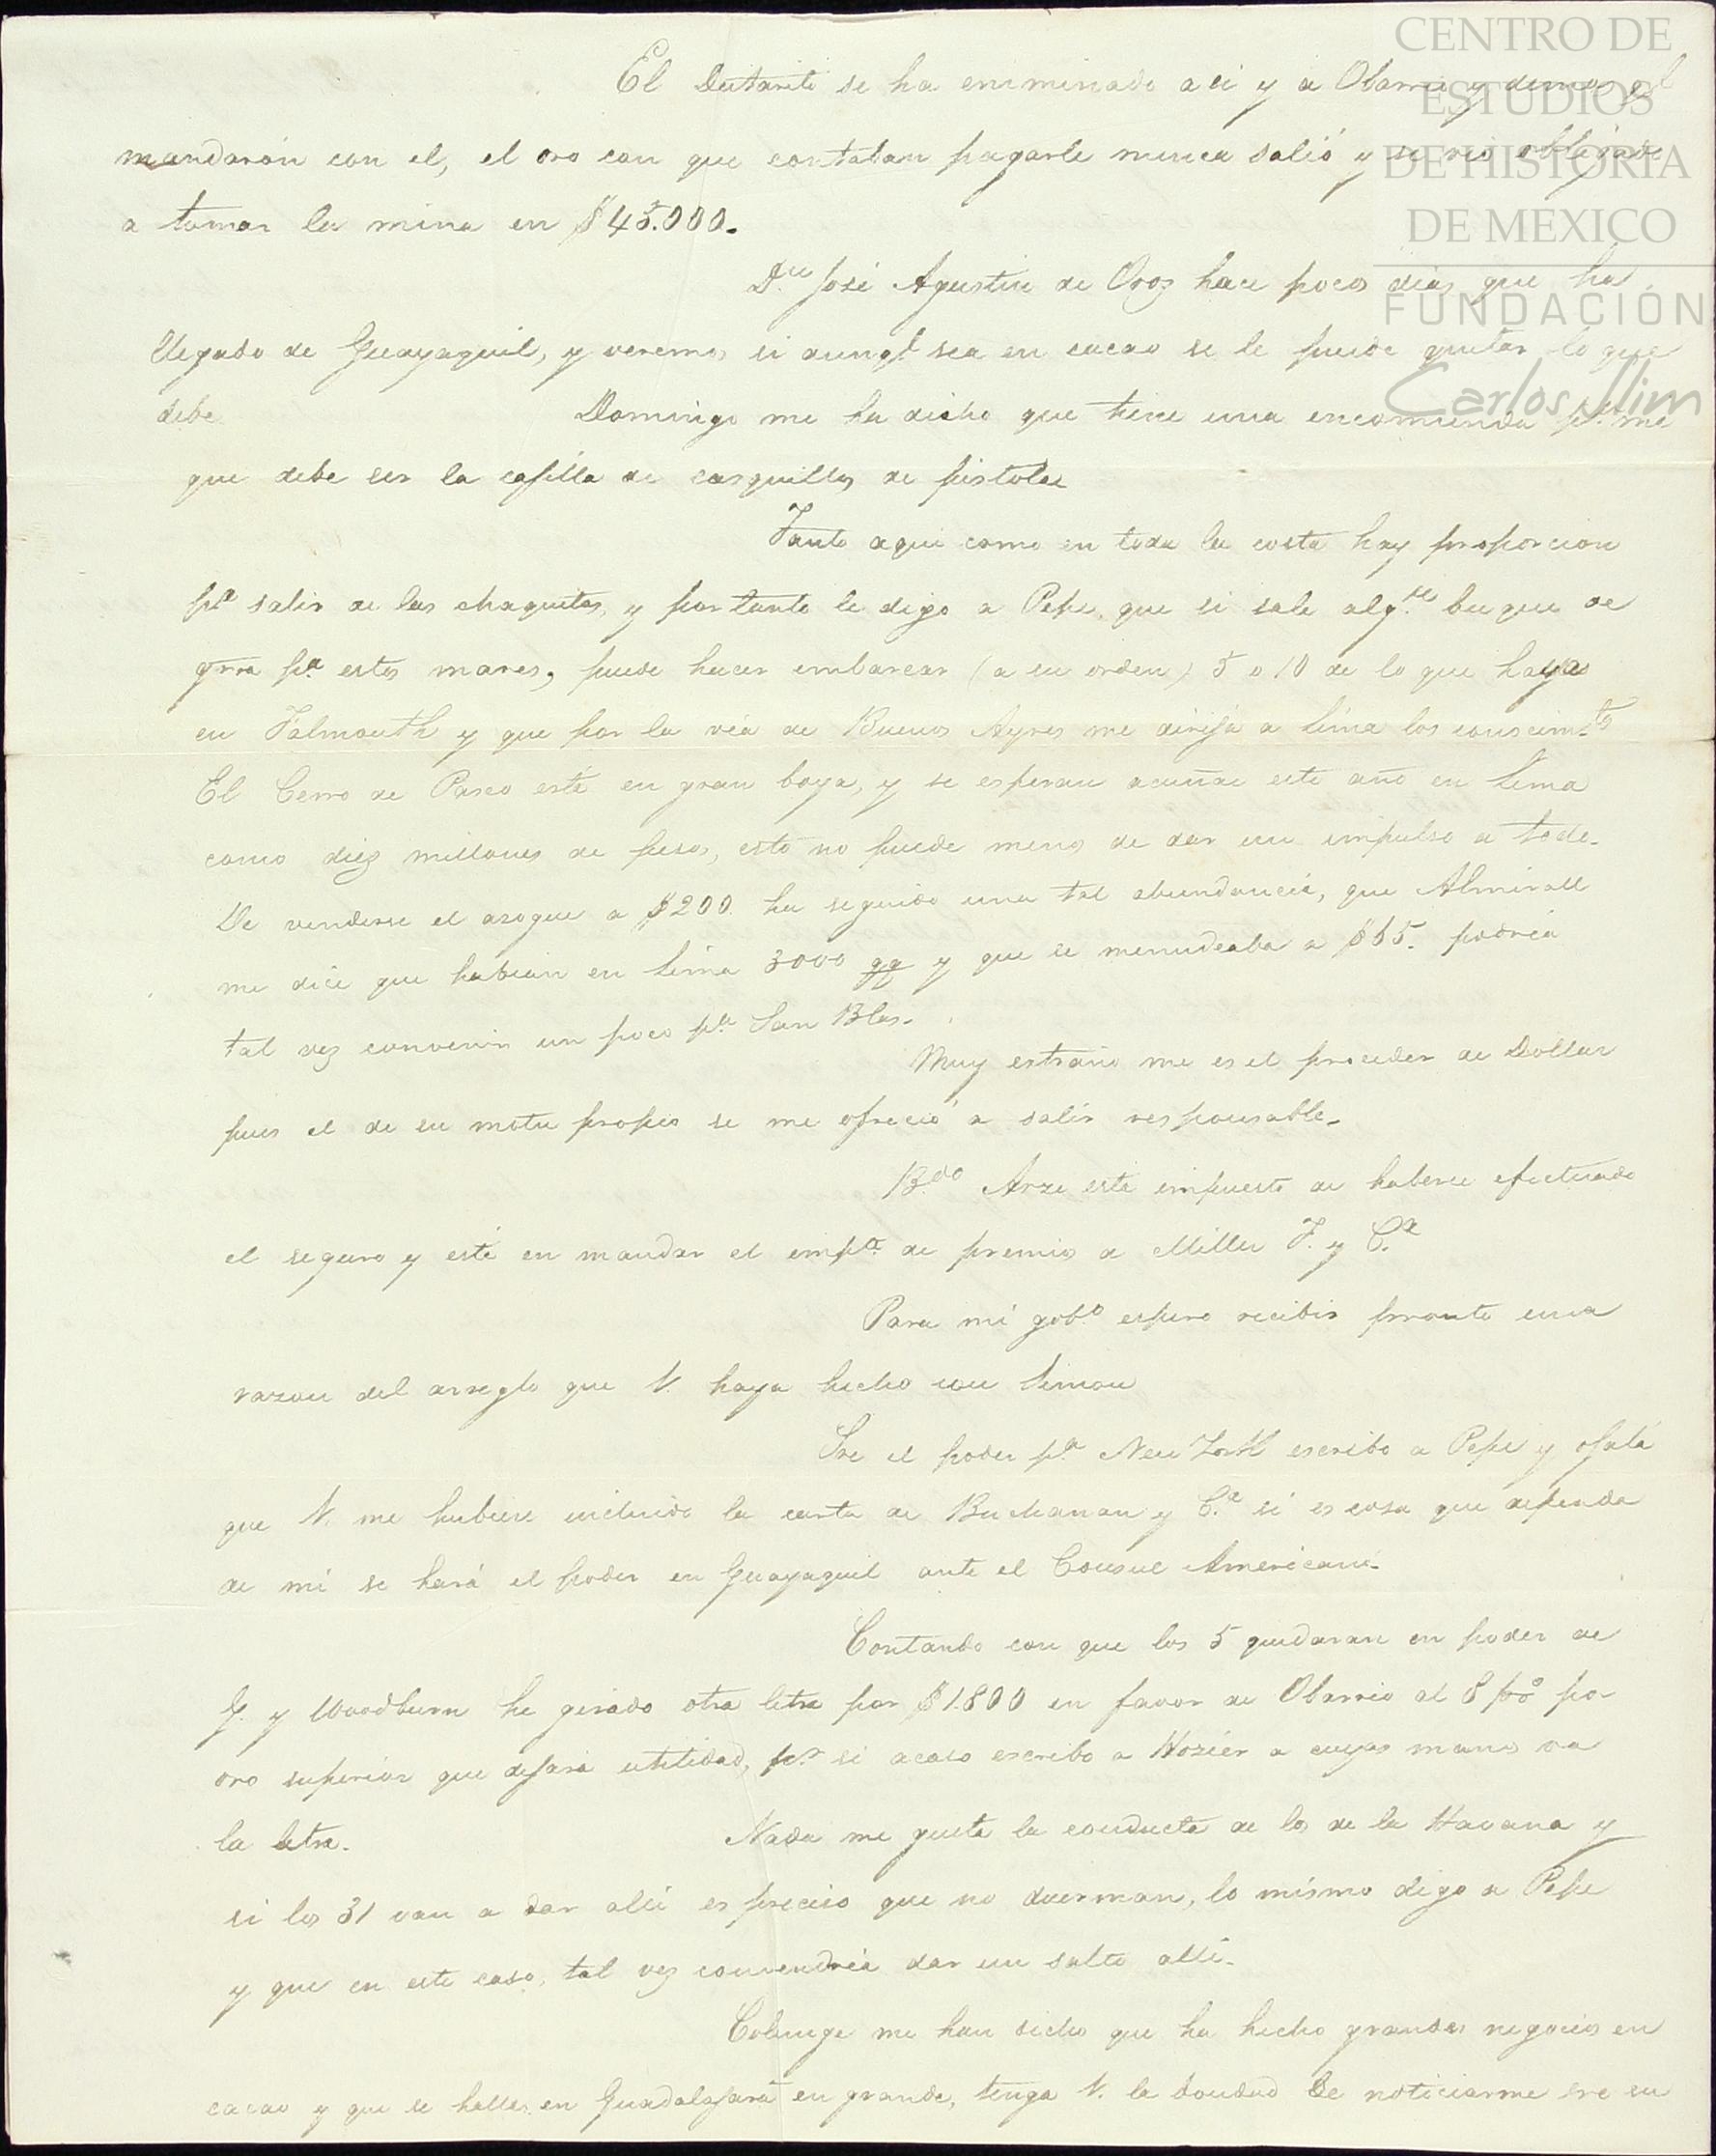 CENTRO DE
ESTUDIOS
DE HISTORIA
DE MEXICO
FUNDACIÓN
Carlos Slim
El se ha encaminado aci y a Obarrio y demas qe
mandarón con el, el oro con que contaban pagarle nunca salió y se vió obligado
a tomar la mina en $45.000.
Dn José Agustin de Oroz hace pocos dias que ha
llegado de Guayaquil, y veremos si aunqe sea en cacao se le puede quitar lo que
debe. Domingo me ha dicho que tiene una encomienda pa mi
que debe ser la cajilla de casquillos de pistolas
Tanto aqui como en toda la costa hay proporcion
pa salir de las chaquetas, y por tanto le digo a Pepe, que si sale algn buque de
grra pa estos mares, puede hacer embarcar (a su orden) 5 o 10 de lo que haya
en Falmouth y que por la via de Buenos Ayres me dirija a Lima los conocimtos
El Cerro de Pasco está en gran boya, y se esperan acuñar este año en Lima
como diez millones de pesos, esto no puede menos de dar un impulso a todo.
De venderse el azogue a $200. ha seguido una tal abundancia, que Almirall
me dice que habian en Lima 3000 qq y que se menudeaba a $65. podria
tal vez convenir un poco pa San Blas.
Muy estraño me es el proceder de Dollar
pues el de su motu propio se me ofreció a salir responsable.
Bdo Arze está impuesto de haberse efectuado
el seguro y está en mandar el impte de premios a Miller F. y Ca
Para mi gobo espero recibir pronto una
razon del arreglo que V. haya hecho con Simon
Sre el poder pa New York escribo a Pepe y ojalá
que V. me hubiese incluido la carta de Buchanan y Ca si es cosa que dependa
de mi se hará el poder en Guayaquil ante el Consul Americano.
Contando con que los 5 quedaran en poder de
G. y Woodburn he girado otra letra por $1.800 en favor de Obarrio al 8 p% por
oro superior que dejará utilidad, pr si acaso escribo a Hozier a cuyas manos va
la letra. Nada me gusta la conducta de los de la Havana y
si los 31 van a dar alli es preciso que no duerman, lo mismo digo a Pepe
y que en este caso, tal vez convendria dar un salto alli.
Colunge me han dicho que ha hecho grandes negocios en
cacao y que se halla en Guadalajara en grande, tenga V. la bondad de noticiarme sre su